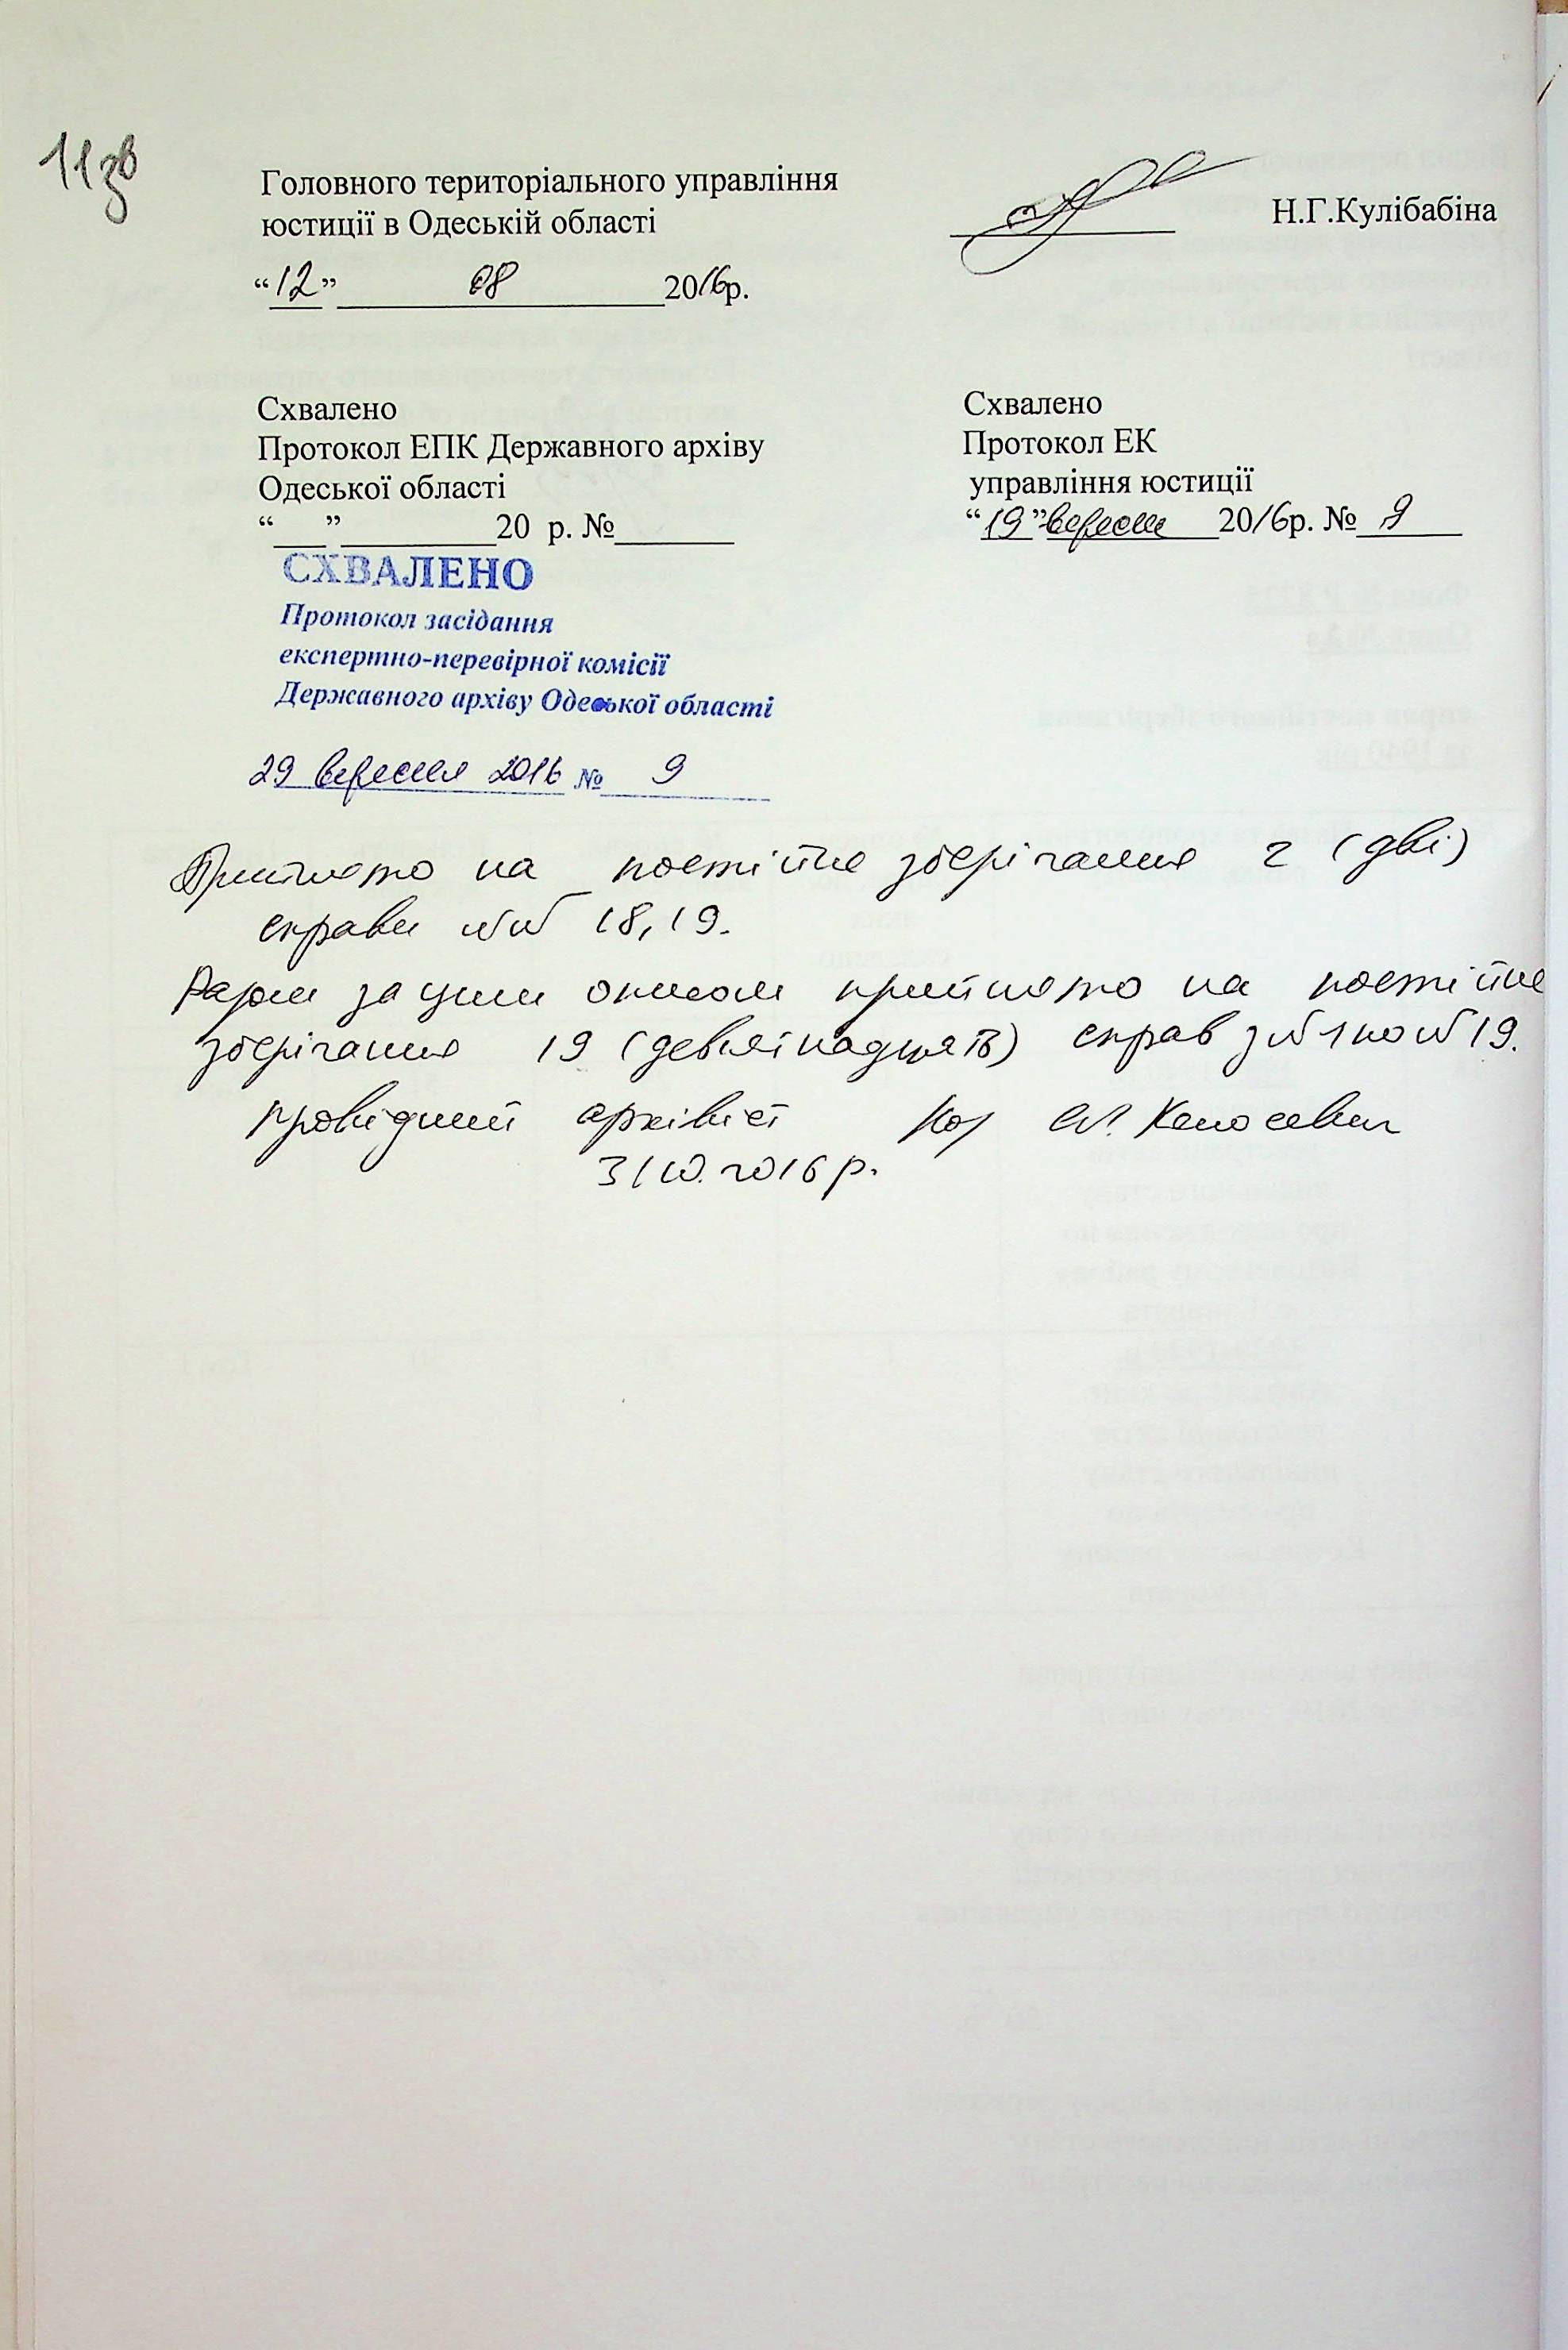 11зв
Головного територіального управління
юстиції в Одеській області
Н.Г.Кулібабіна
“12” 08 2016р.
Схвалено
Протокол ЕПК Державного архіву
Одеської області
“___” _________20 р. №_______
Схвалено
Протокол ЕК
управління юстиції
“19” вересня 2016р. № 9
СХВАЛЕНО
Протокол засідання
експертно-перевірної комісії
Державного архіву Одеської області
29 вересня 2016 № 9
Прийнято на постійне зберігання 2 (дві)
справи №№ 18, 19.
Разом за цим описом прийнято на постійне
зберігання 19 (дев'ятнадцять) справ з №1 по №19.
провідний архівіст
31.10.2016 р.